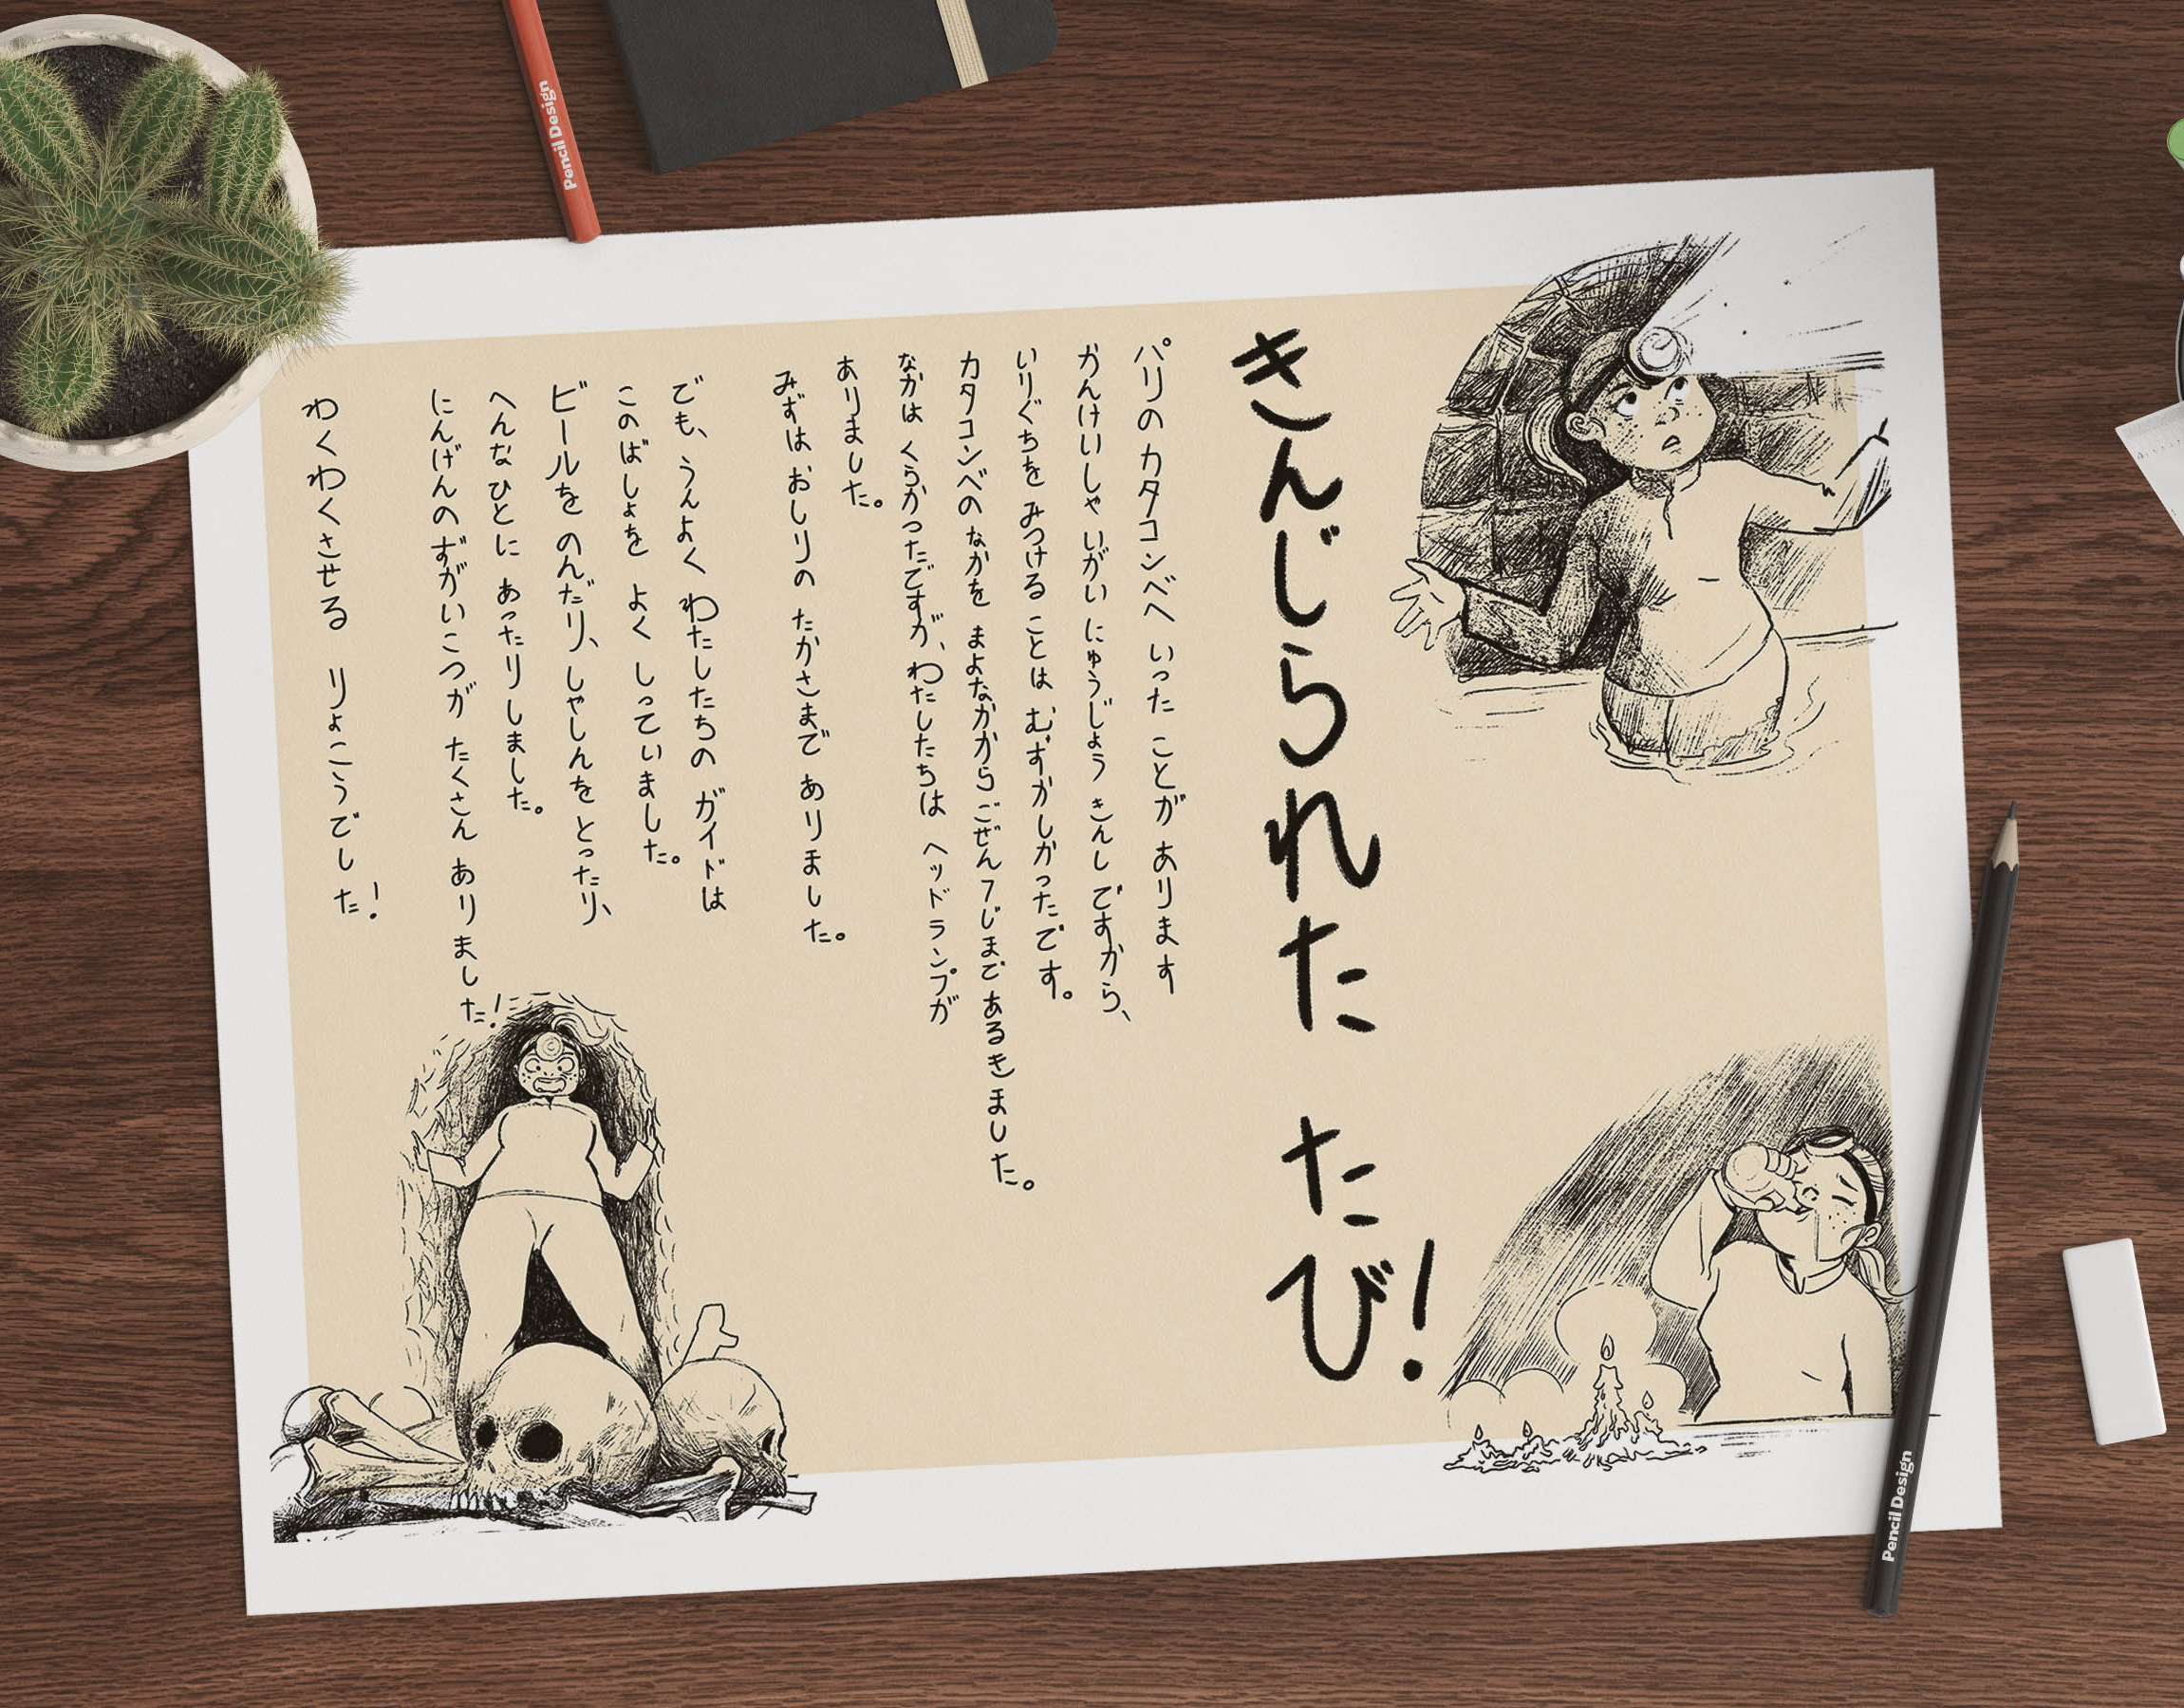 きんじられた たび!
パリのカタコンベへ いった ことが あります
かんけいしゃ いがい にゅうじょう きんし ですから、
いりぐちを みつける ことは むずかしかったです。
カタコンベの なかを まよなかから ごぜん 7じまで あるきました。
なかは くらかったですが、わたしたちは ヘッドランプが
ありました。
みずは おしりの たかさまで ありました。
でも、うんよく わたしたちの ガイドは
このばしょを よく しっていました。
ビールを のんだり、しゃしんを とったり、
へんな ひとに あったりしました。
にんげんの ずがいこつが たくさん ありました!
わくわくさせる りょこうでした!
Pencil Design
Pencil Design